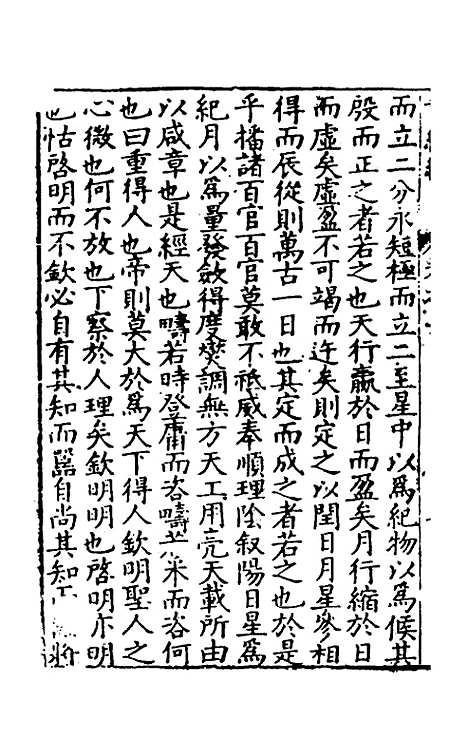 而立二分永短極而立二至星中以爲紀物以爲候其
殷而正之者若之也天行贏於日而盈矣月行縮於日
而虛矣虛盈不可竭而迕矣則定之以閏日月星參相
得而辰從則萬古一日也其定而成之者若之也於是
乎播諸百官百官莫敢不祗威奉順理陰叙陽日星爲
紀月以爲量發斂得度燮調無方天工用亮天載所由
以咸章也是經天也疇若時登庸而咨疇若采而咨何
也曰重得人也帝則莫大於爲天下得人欽明聖人之
心微也何不放也下察於人理矣欽明明也啓明亦明
也怙啓明而不欽必自有其知而嚚自尚其知